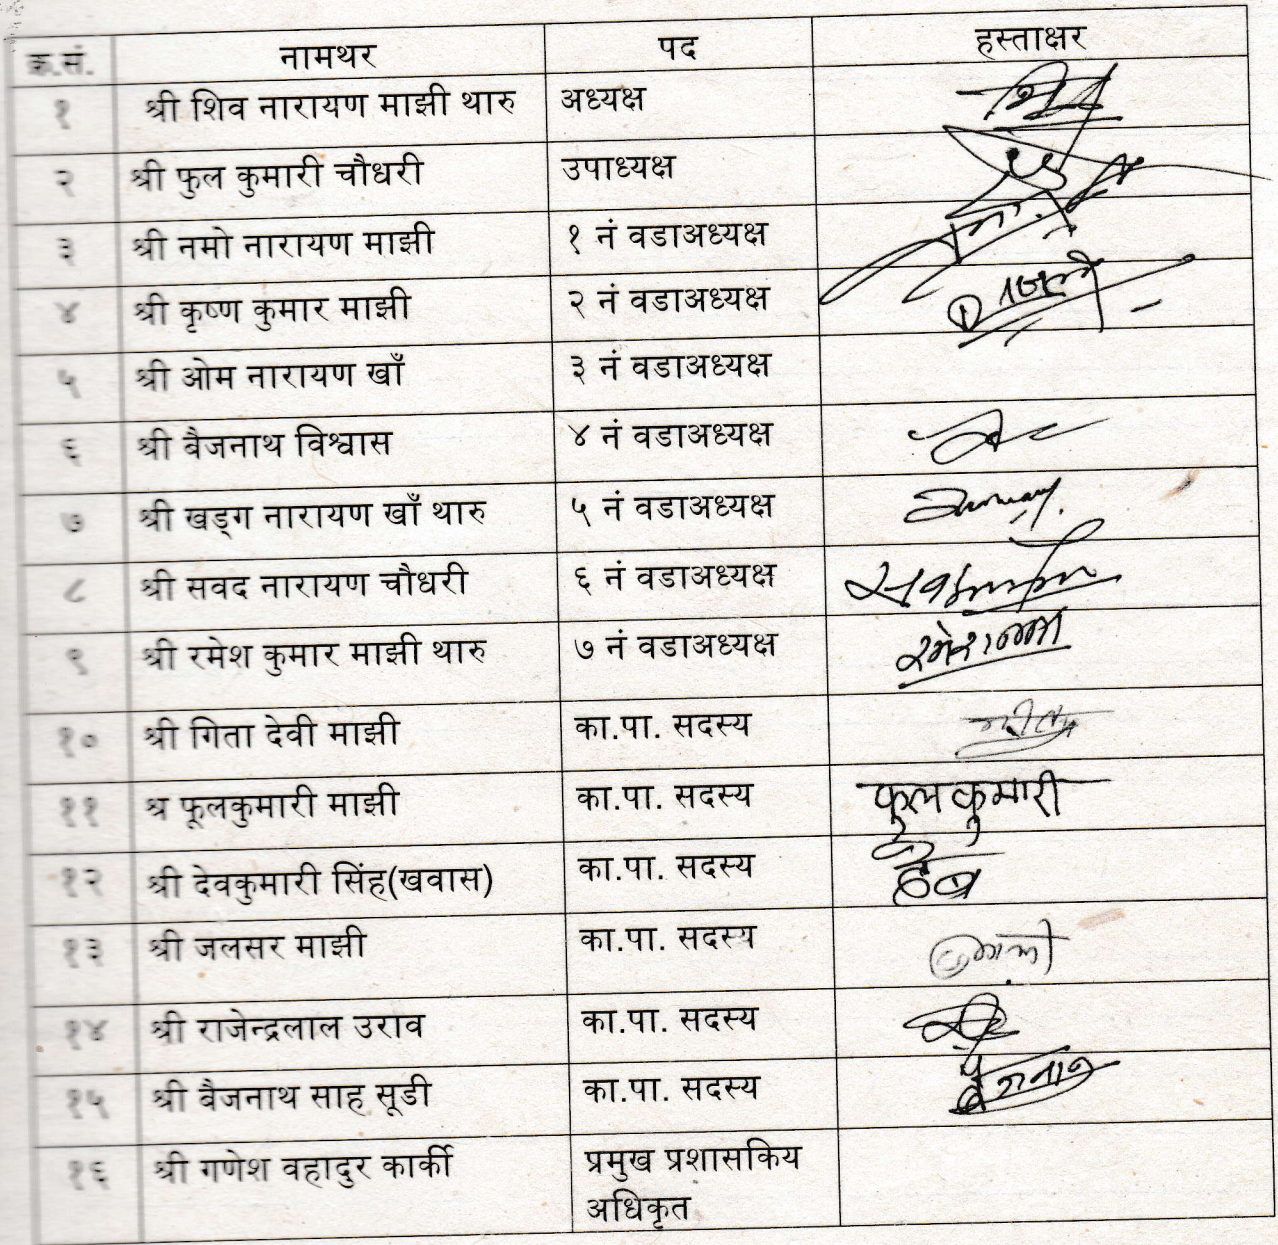 क्र.सं. नामथर पद हस्ताक्षर
१ श्री शिव नारायण माझी थारु अध्यक्ष
२ श्री फुल कुमारी चौधरी उपाध्यक्ष
३ श्री नमो नारायण माझी १ नं वडाअध्यक्ष
४ श्री कृष्ण कुमार माझी २ नं वडाअध्यक्ष
५ श्री ओम नारायण खाँ ३ नं वडाअध्यक्ष
६ श्री बैजनाथ विश्वास ४ नं वडाअध्यक्ष
७ श्री खड्ग नारायण खाँ थारु ५ नं वडाअध्यक्ष
८ श्री सवद नारायण चौधरी ६ नं वडाअध्यक्ष
९ श्री रमेश कुमार माझी थारु ७ नं वडाअध्यक्ष
१० श्री गिता देवी माझी का.पा. सदस्य
११ श्र फूलकुमारी माझी का.पा. सदस्य फूलकुमारी
१२ श्री देवकुमारी सिंह(खवास) का.पा. सदस्य
१३ श्री जलसर माझी का.पा. सदस्य
१४ श्री राजेन्द्रलाल उराव का.पा. सदस्य
१५ श्री बैजनाथ साह सूडी का.पा. सदस्य
१६ श्री गणेश वहादुर कार्की प्रमुख प्रशासकिय
अधिकृत